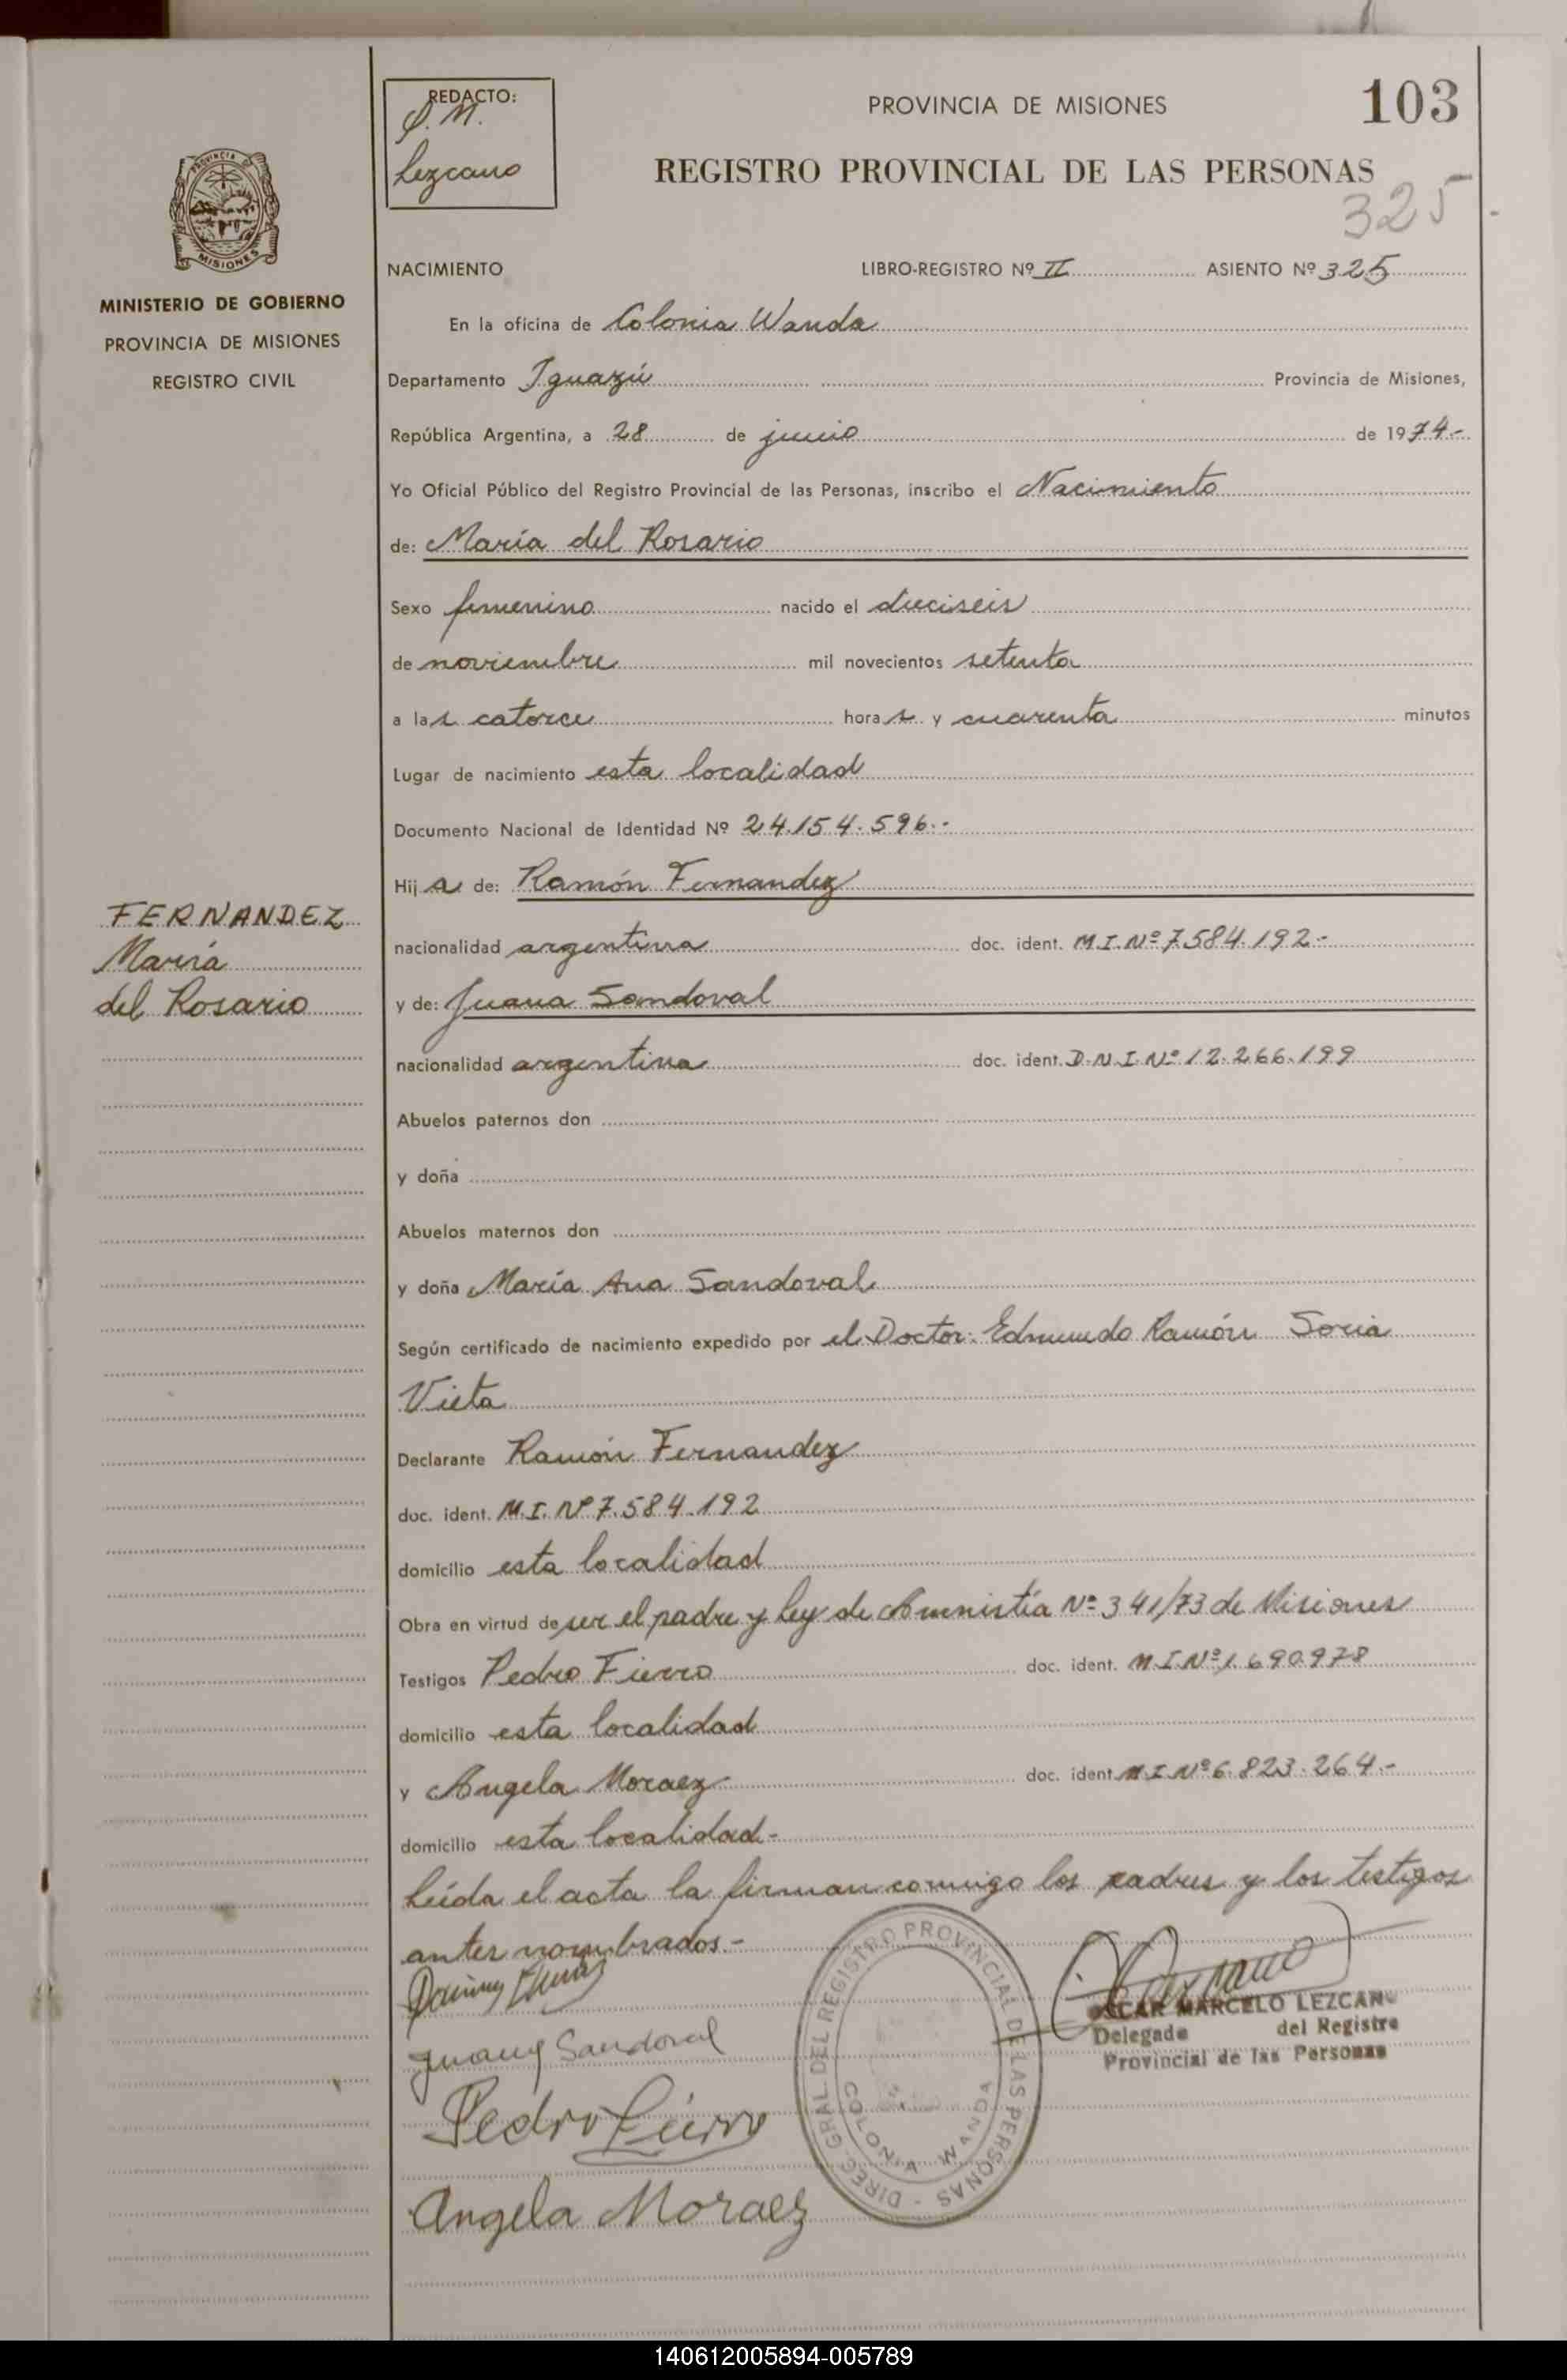 REDACTO:
O. M.
Lezcano
PROVINCIA DE MISIONES
103
REGISTRO PROVINCIAL DE LAS PERSONAS
325
PROVINCIA
MISIONES
MINISTERIO DE GOBIERNO
PROVINCIA DE MISIONES
REGISTRO CIVIL
NACIMIENTO LIBRO-REGISTRO Nº II ASIENTO Nº 325
En la oficina de Colonia Wanda
Departamento Iguazú Provincia de Misiones,
República Argentina, a 28 de junio de 1974.-
Yo Oficial Público del Registro Provincial de las Personas, inscribo el Nacimiento
de: María del Rosario
Sexo femenino nacido el dieciseis
de noviembre mil novecientos setenta
a las catorce horas y cuarenta minutos
Lugar de nacimiento esta localidad
Documento Nacional de Identidad Nº 24.154.596.-
Hija de: Ramón Fernandez
FERNANDEZ
María
del Rosario
nacionalidad argentina doc. ident. M.I.Nº 7.584.192.-
y de: Juana Sandoval
nacionalidad argentina doc. ident. D.N.I.Nº 12.266.199
Abuelos paternos don
y doña
Abuelos maternos don
y doña María Ana Sandoval
Según certificado de nacimiento expedido por el Doctor: Edmundo Ramón Soria
Vieta
Declarante Ramón Fernandez
doc. ident. M.I. Nº 7.584.192
domicilio esta localidad
Obra en virtud de ser el padre y ley de Amnistía Nº 341/73 de Misiones
Testigos Pedro Fierro doc. ident. M.I.Nº 1.690.978
domicilio esta localidad
y Angela Moraez doc. ident. M.I.Nº 6.823.264.-
domicilio esta localidad.-
Leída el acta la firman conmigo los padres y los testigos
antes nombrados.-
Juana Sandoval
Pedro Fierro
Angela Moraez
DIREC. GRAL DEL REGISTRO PROVINCIAL DE LAS PERSONAS -
COLONIA WANDA
Lezcano
OSCAR MARCELO LEZCANO
Delegado del Registro
Provincial de las Personas
140612005894-005789